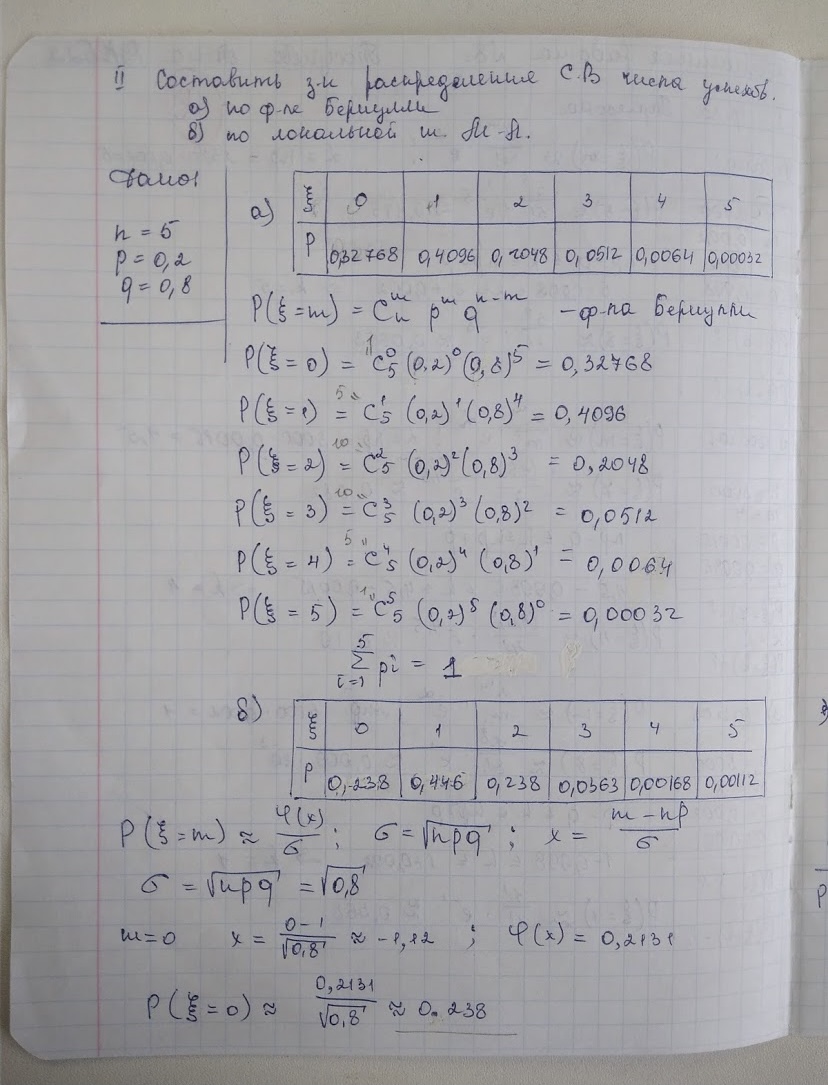 II Составить з-н распределения С.В числа успехов.
а) по ф-ле Бернулли
б) по локальной т. М-Л.
Дано:
n = 5
p = 0,2
q = 0,8
а)
ξ 0 1 2 3 4 5
P 0,32768 0,4096 0,2048 0,0512 0,0064 0,00032
P(ξ=m) = Cₙᵐ pᵐ qⁿ⁻ᵐ - ф-ла Бернулли
P(ξ=0) = C₅⁰ (0,2)⁰ (0,8)⁵ = 0,32768
1 "
P(ξ=1) = C₅¹ (0,2)¹ (0,8)⁴ = 0,4096
5 "
P(ξ=2) = C₅² (0,2)² (0,8)³ = 0,2048
10 "
P(ξ=3) = C₅³ (0,2)³ (0,8)² = 0,0512
10 "
P(ξ=4) = C₅⁴ (0,2)⁴ (0,8)¹ = 0,0064
5 "
P(ξ=5) = C₅⁵ (0,2)⁵ (0,8)⁰ = 0,00032
1 "
5
∑ pi = 1
i=1
б)
ξ 0 1 2 3 4 5
P 0,238 0,446 0,238 0,0363 0,00168 0,00112
P(ξ=m) ≈ φ(x)/σ ; σ = √npq ; x = (m-np)/σ
σ = √npq = √0,8
m=0 x = (0-1)/√0,8 ≈ -1,12 ; φ(x) = 0,2131
P(ξ=0) ≈ 0,2131/√0,8 ≈ 0.238